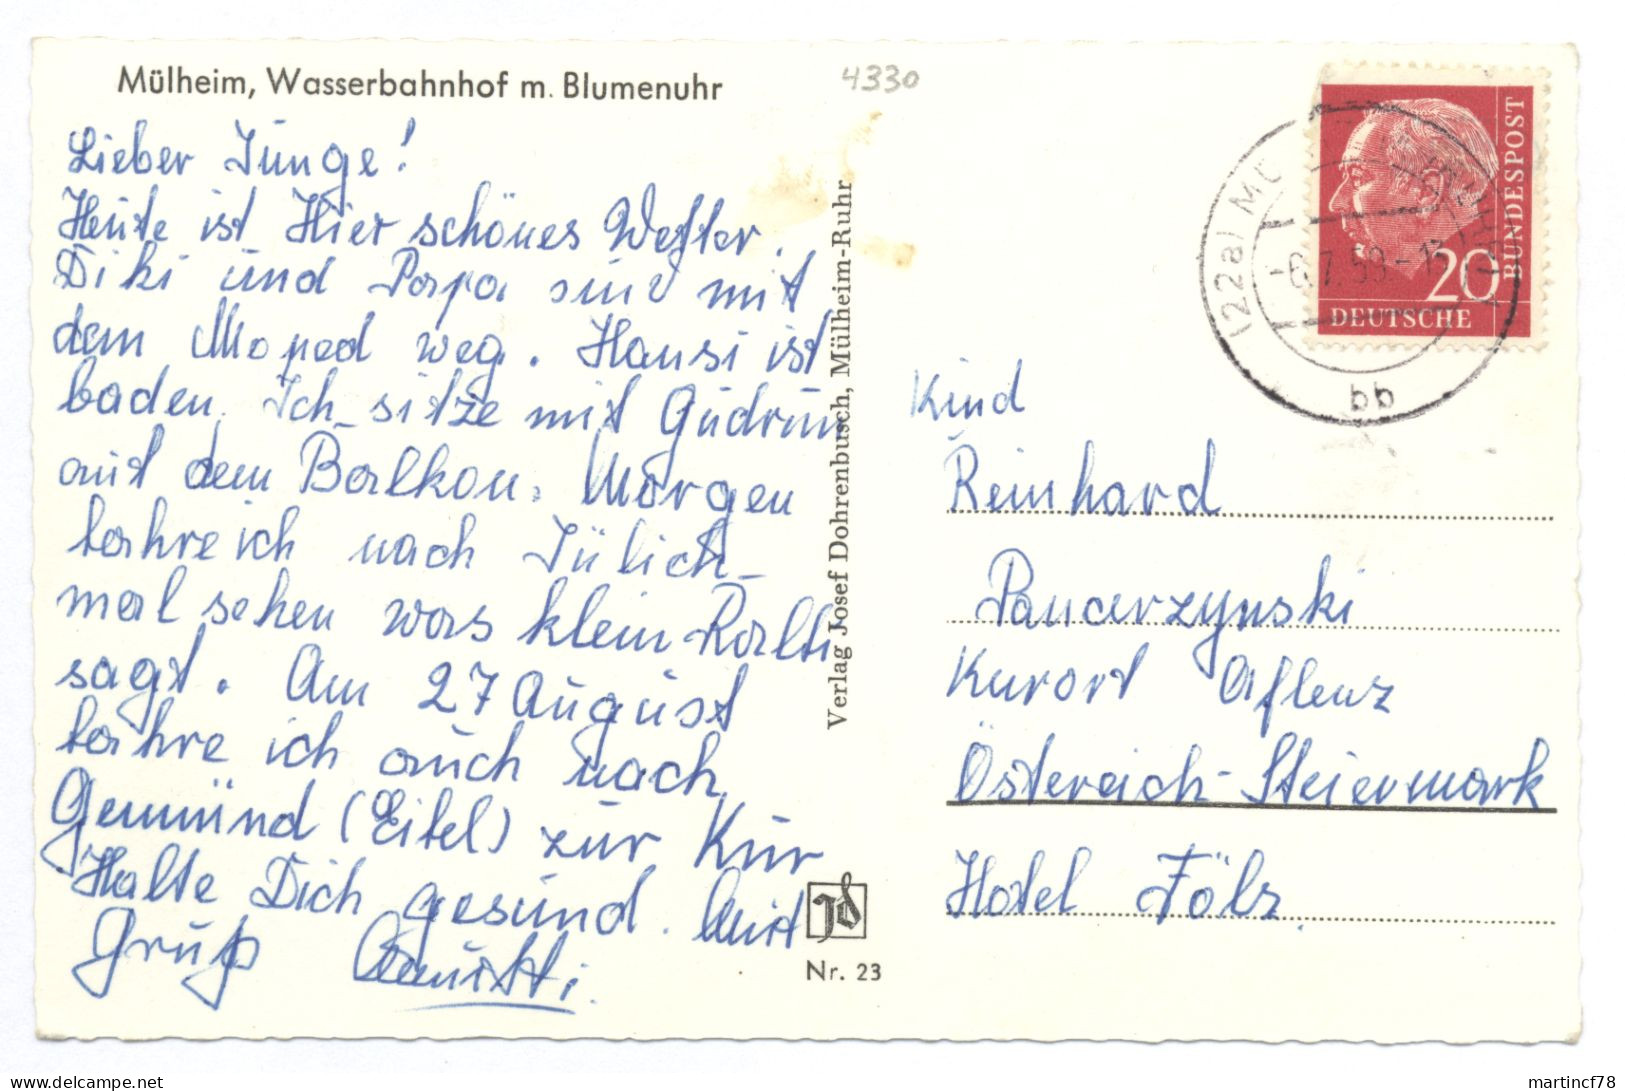 Mülheim, Wasserbahnhof m. Blumenuhr
4330
Lieber Junge!
Heute ist Hier schönes Wetter.
Diki und Papa sind mit
dem Moped weg. Hansi ist
baden. Ich sitze mit Gudrun
auf dem Balkon. Morgen
fahre ich nach Jülich
mal sehen was klein Ralfi
sagt. Am 27 August
fahre ich auch nach
Gemünd (Eifel) zur Kur
Halte Dich gesund. Mit
Gruß
Verlag Josef Dohrenbusch, Mülheim-Ruhr
Jd
Nr. 23
BUNDESPOST
20
DEUTSCHE
(22a) MÜ
-6.7.59-1
bb
Kind
Reinhard
Pancerzynski
Kurort Aflenz
Östereich-Steiermark
Hotel Fölz.
martincf78
delcampe.net